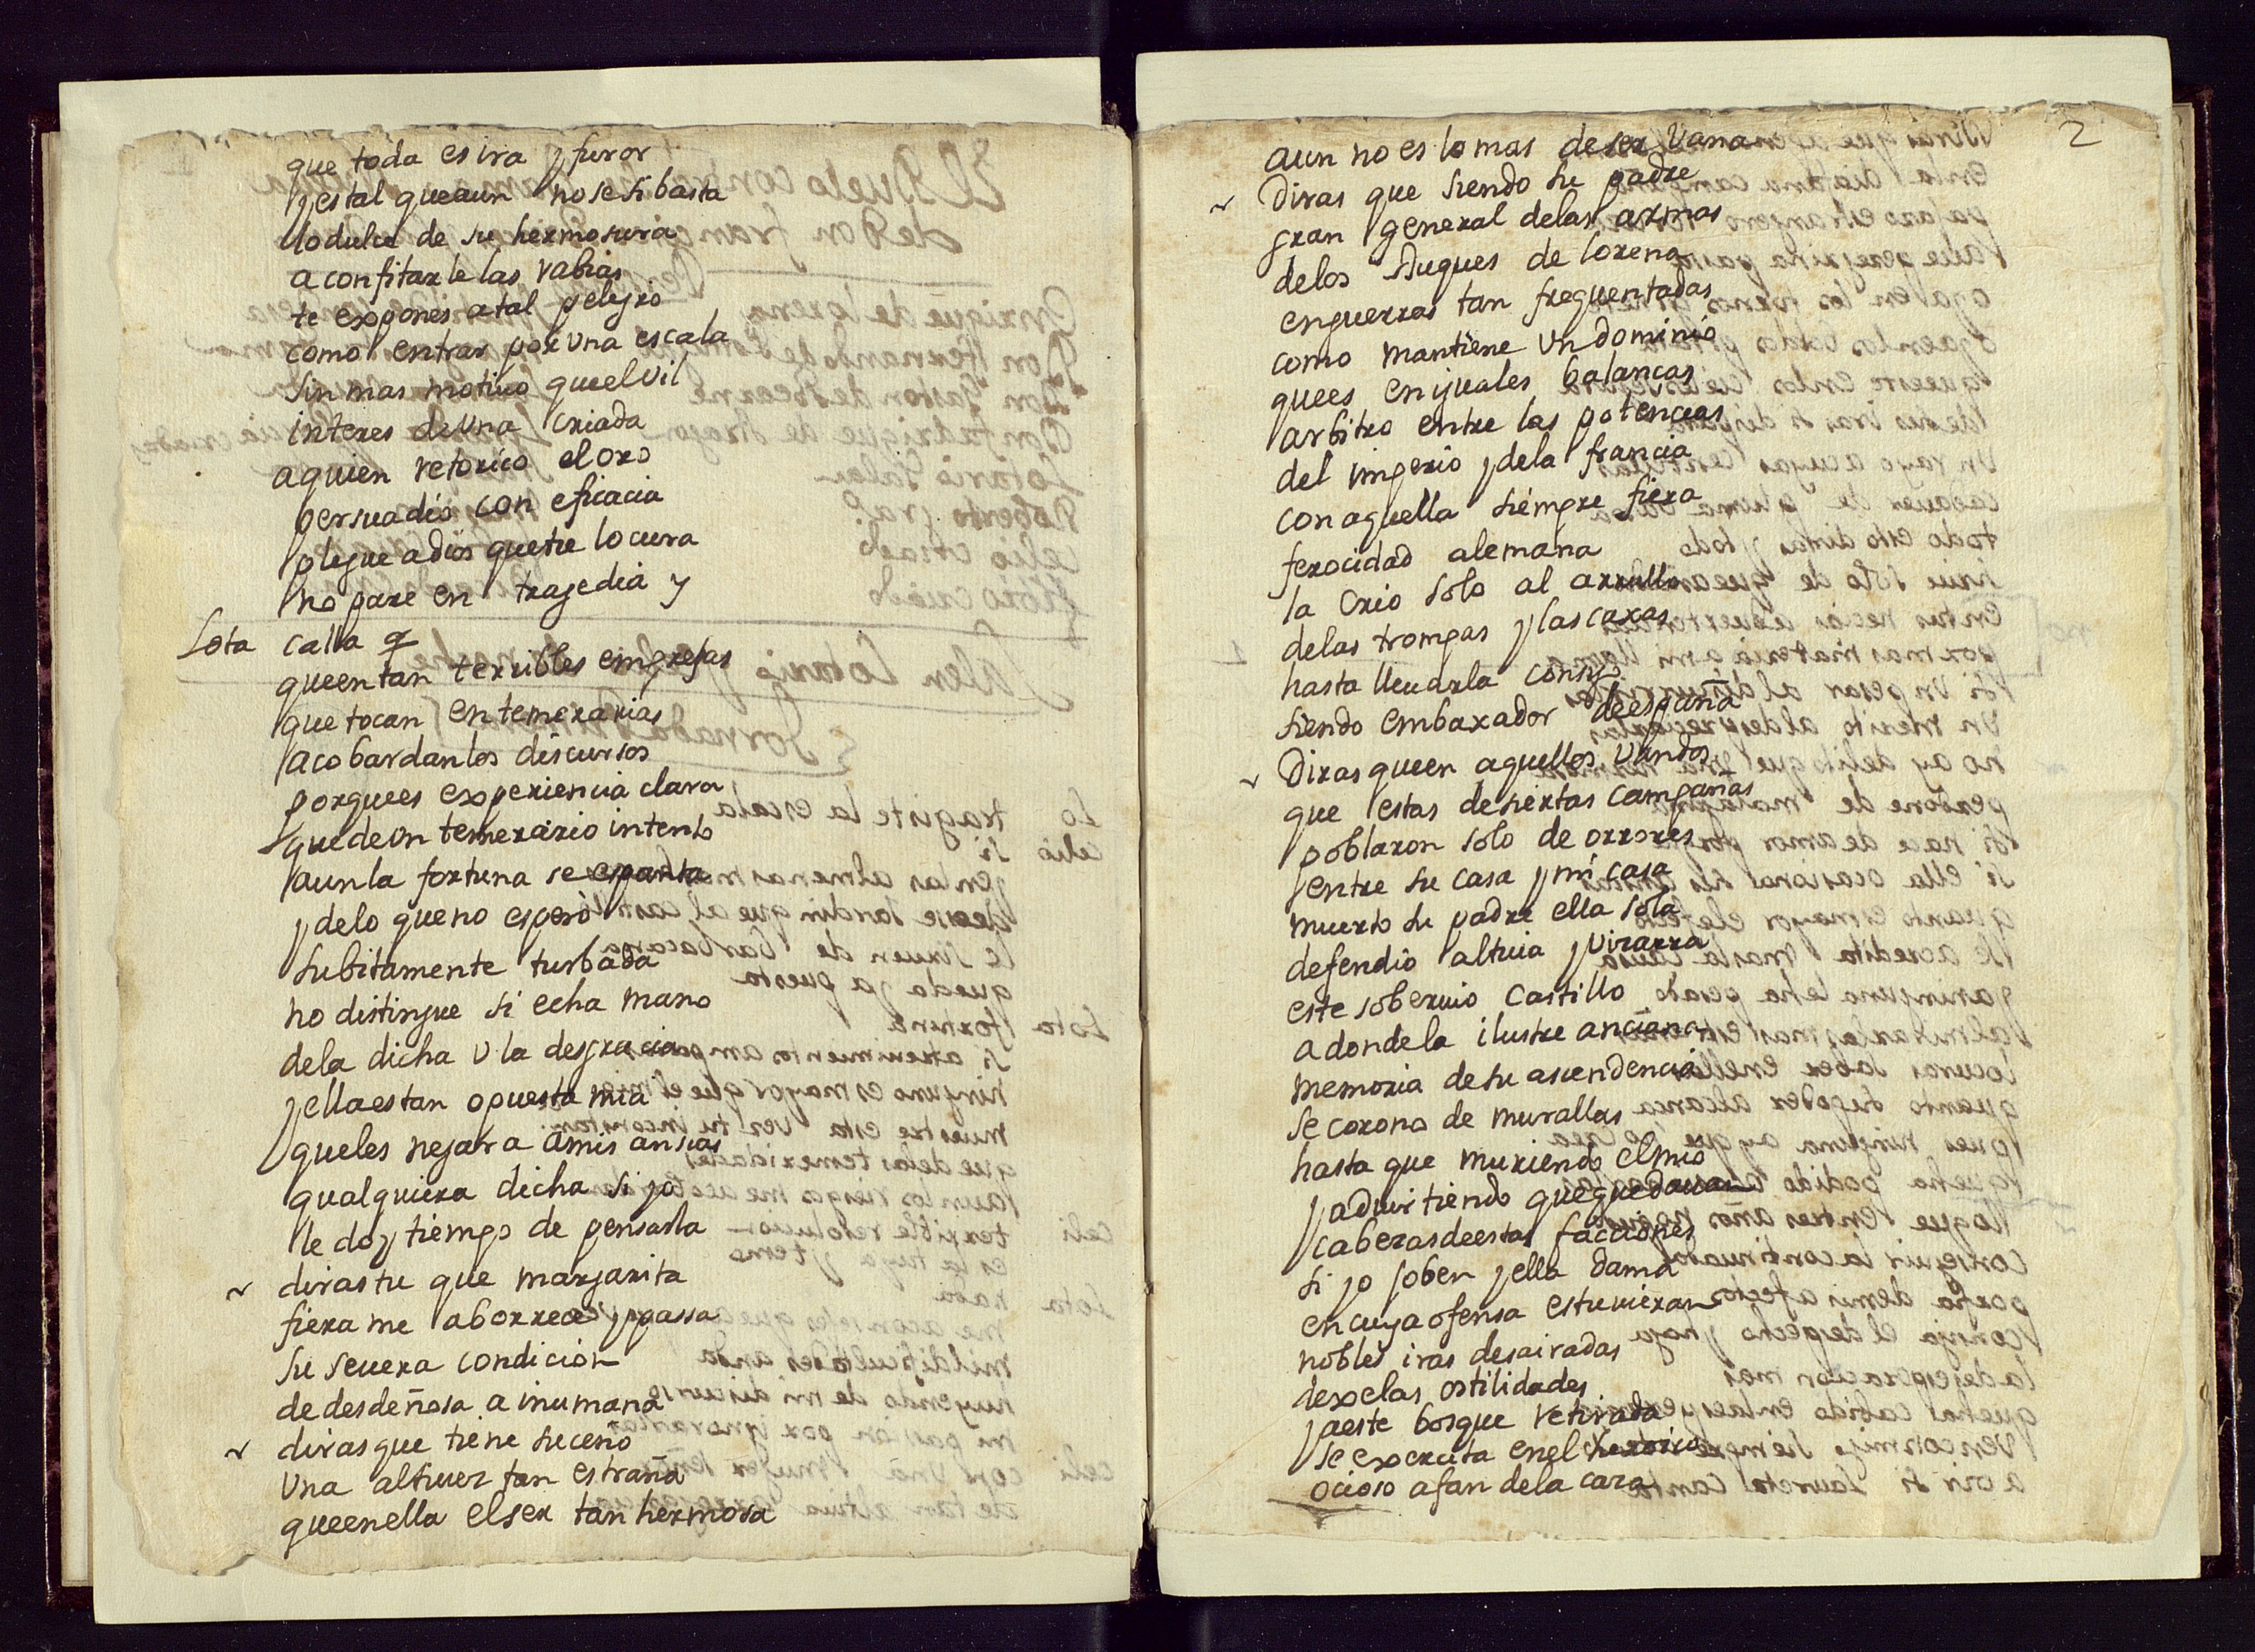 que toda es ira y furor
y es tal que aun no se si basta
lo dulce de su hermosura
a confitarle las rabias
te expones a tal peligro
como entrar por una escala
sin mas motiuo que el vil
interes de una criada
a quien retorico el oro
persuadio con eficacia
plegue a dios que tu locura
no pare en tragedia y
Lota calla q
que en tan terribles empresas
que tocan en temerarias
acobardan los discursos
porque es experiencia clara
que de un temerario intento
aun la fortuna se espanta
y de lo que no espero
subitamente turbada
no distingue si echa mano
de la dicha v la desgracia
y ella es tan opuesta mia
que les negara a mis ansias
qualquiera dicha si yo
le doy tiempo de pensarla
diras tu que margarita
fiera me aborrece y passa
su seuera condicion
de desdeñosa a inumana
diras que tiene su ceño
una altiuez tan estraña
que en ella el ser tan hermosa
2
aun no es lo mas de ser vana
Diras que siendo su padre
gran general de las armas
de los Duques de lorena
en guerras tan frequentadas
como mantiene un dominio
que es en iguales balanças
arbitro entre las potencias
del imperio y de la francia
con aquella siempre fiera
ferocidad alemana
la crio solo al arrullo
de las trompas y las caxas
hasta lleuarla consigo
siendo embaxador de españa
Diras que en aquellos vandos
que estas desiertas campañas
poblaron solo de orrores
entre su casa y mi casa
muerto su padre ella sola
defendio altiuia y vizarra
este soberuio castillo
a donde la ilustre anciana
memoria de su ascendencia
se corona de murallas
hasta que muriendo el mio
y aduirtiendo que quedauan
cabezas de estas facciones
si yo joben y ella dama
en cuya ofensa estuuieran
nobles iras desairadas
dexe las ostilidades
y a este bosque retirada
se exercita en el heroico
ocioso afan de la caza